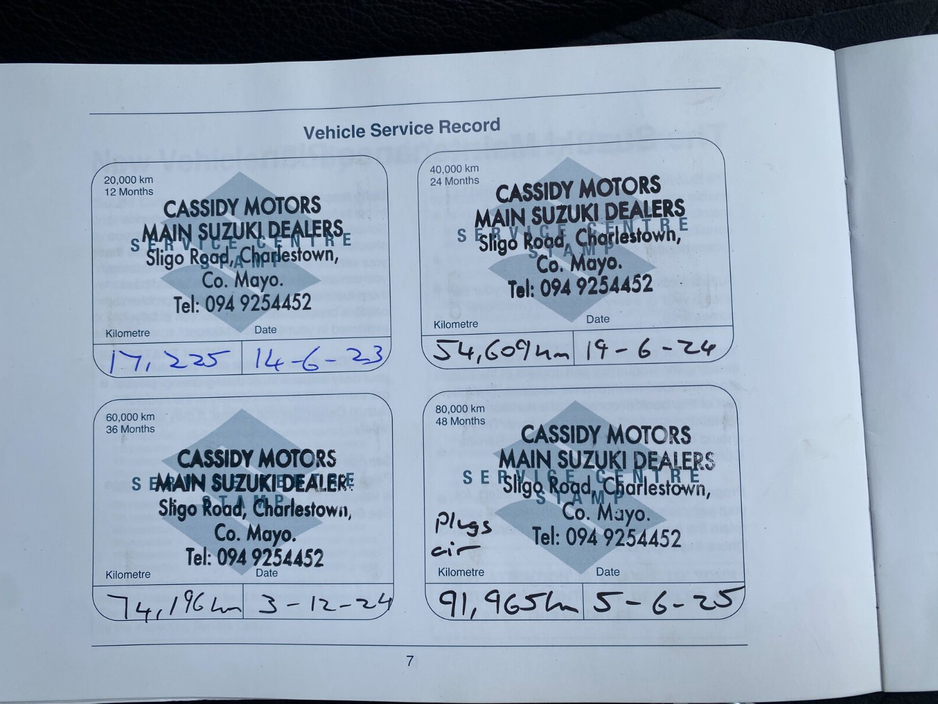 Vehicle Service Record
20,000 km
12 Months
CASSIDY MOTORS
MAIN SUZUKI DEALERS
SERVICE CENTRE
STAMP
Sligo Road, Charlestown,
Co. Mayo.
Tel: 094 9254452
Kilometre Date
17,225 14-6-23
40,000 km
24 Months
CASSIDY MOTORS
MAIN SUZUKI DEALERS
SERVICE CENTRE
STAMP
Sligo Road, Charlestown,
Co. Mayo.
Tel: 094 9254452
Kilometre Date
54,609km 19-6-24
60,000 km
36 Months
CASSIDY MOTORS
MAIN SUZUKI DEALER
SERVICE CENTRE
STAMP
Sligo Road, Charlestown,
Co. Mayo.
Tel: 094 9254452
Kilometre Date
74,196km 3-12-24
80,000 km
48 Months
CASSIDY MOTORS
MAIN SUZUKI DEALERS
SERVICE CENTRE
STAMP
Sligo Road, Charlestown,
Co. Mayo.
Tel: 094 9254452
Plugs
air
Kilometre Date
91,965km 5-6-25
7